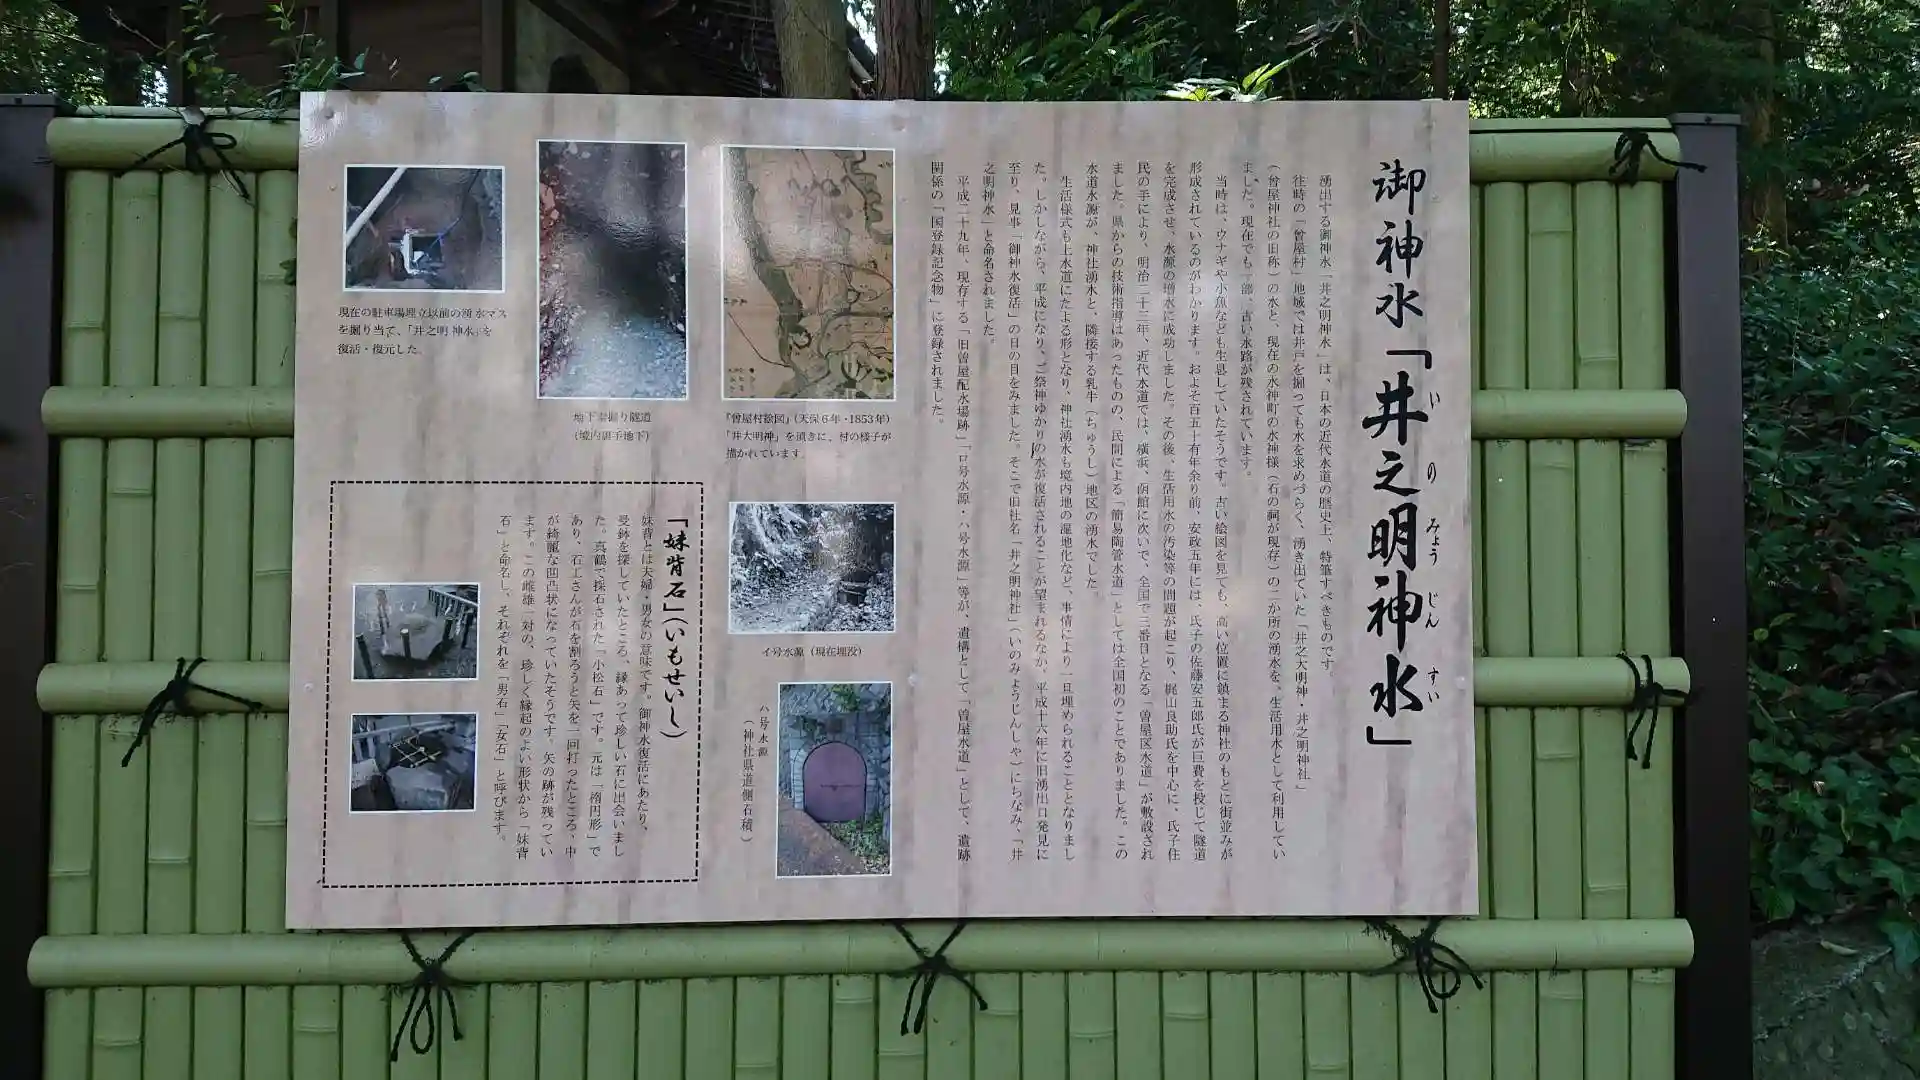 御神水「井之明神水」
い の みょう じん すい
湧出する御神水「井之明神水」は、日本の近代水道の歴史上、特筆すべきものです。
往時の「曾屋村」地域では井戸を掘っても水を求めづらく、湧き出ていた「井之大明神・井之明神社」
（曾屋神社の旧称）の水と、現在の水神町の水神様（石の祠が現存）の二か所の湧水を、生活用水として利用してい
ました。現在でも一部、古い水路が残されています。
当時は、ウナギや小魚なども生息していたそうです。古い絵図を見ても、高い位置に鎮まる神社のもとに街並みが
形成されているのがわかります。およそ百五十有年余り前、安政五年には、氏子の佐藤安五郎氏が巨費を投じて隧道
を完成させ、水源の増水に成功しました。その後、生活用水の汚染等の問題が起こり、梶山良助氏を中心に、氏子住
民の手により、明治二十三年、近代水道では、横浜、函館に次いで、全国で三番目となる「曾屋区水道」が敷設され
ました。県からの技術指導はあったものの、民間による「簡易陶管水道」としては全国初のことでありました。この
水道水源が、神社湧水と、隣接する乳牛（ちゅうし）地区の湧水でした。
生活様式も上水道にたよる形となり、神社湧水も境内地の湿地化など、事情により一旦埋められることとなりまし
た。しかしながら、平成になり、ご祭神ゆかりの水が復活されることが望まれるなか、平成十六年に旧湧出口発見に
至り、見事「御神水復活」の日の目をみました。そこで旧社名「井之明神社」（いのみょうじんしゃ）にちなみ、「井
之明神水」と命名されました。
平成二十九年、現存する「旧曾屋配水場跡」「ロ号水源・ハ号水源」等が、遺構として「曾屋水道」として、遺跡
関係の「国登録記念物」に登録されました。
『曾屋村絵図』（天保6年・1853年）
「井大明神」を頂きに、村の様子が
描かれています。
地下素掘り隧道
（境内裏手地下）
現在の駐車場埋立以前の湧水マス
を掘り当て、「井之明神水」を
復活・復元した。
イ号水源（現在埋没）
ハ号水源
（神社県道側石積）
「妹背石」（いもせいし）
妹背とは夫婦・男女の意味です。御神水復活にあたり、
受鉢を探していたところ、縁あって珍しい石に出会いまし
た。真鶴で採石された「小松石」です。元は「楕円形」で
あり、石工さんが石を割ろうと矢を一回打ったところ、中
が綺麗な凹凸状になっていたそうです。矢の跡が残ってい
ます。この雌雄一対の、珍しく縁起のよい形状から「妹背
石」と命名し、それぞれを「男石」「女石」と呼びます。